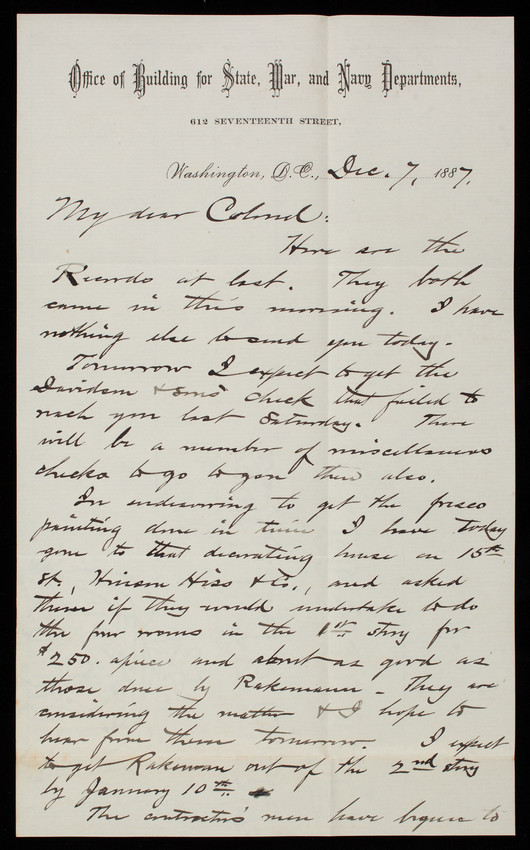 Office of Building for State, War, and Navy Departments,
612 SEVENTEENTH STREET,
Washington, D.C., Dec. 7, 1887.
My dear Colonel:
Here are the
Records at last. They both
came in this morning. I have
nothing else to send you today.
Tomorrow I expect to get the
Davidson & Sons check that failed to
reach you last Saturday. There
will be a number of miscellaneous
checks to go to you then also.
In endeavoring to get the fresco
painting done in time I have today
gone to that decorating house on 15th
St., Hiss & Co., and asked
them if they would undertake to do
the four rooms in the 1st story for
$250. apiece and about as good as
those done by Rakemann - They are
considering the matter & I hope to
hear from them tomorrow. I expect
to get Rakemann out of the 2nd story
by January 10th.
The contractor's men have begun to